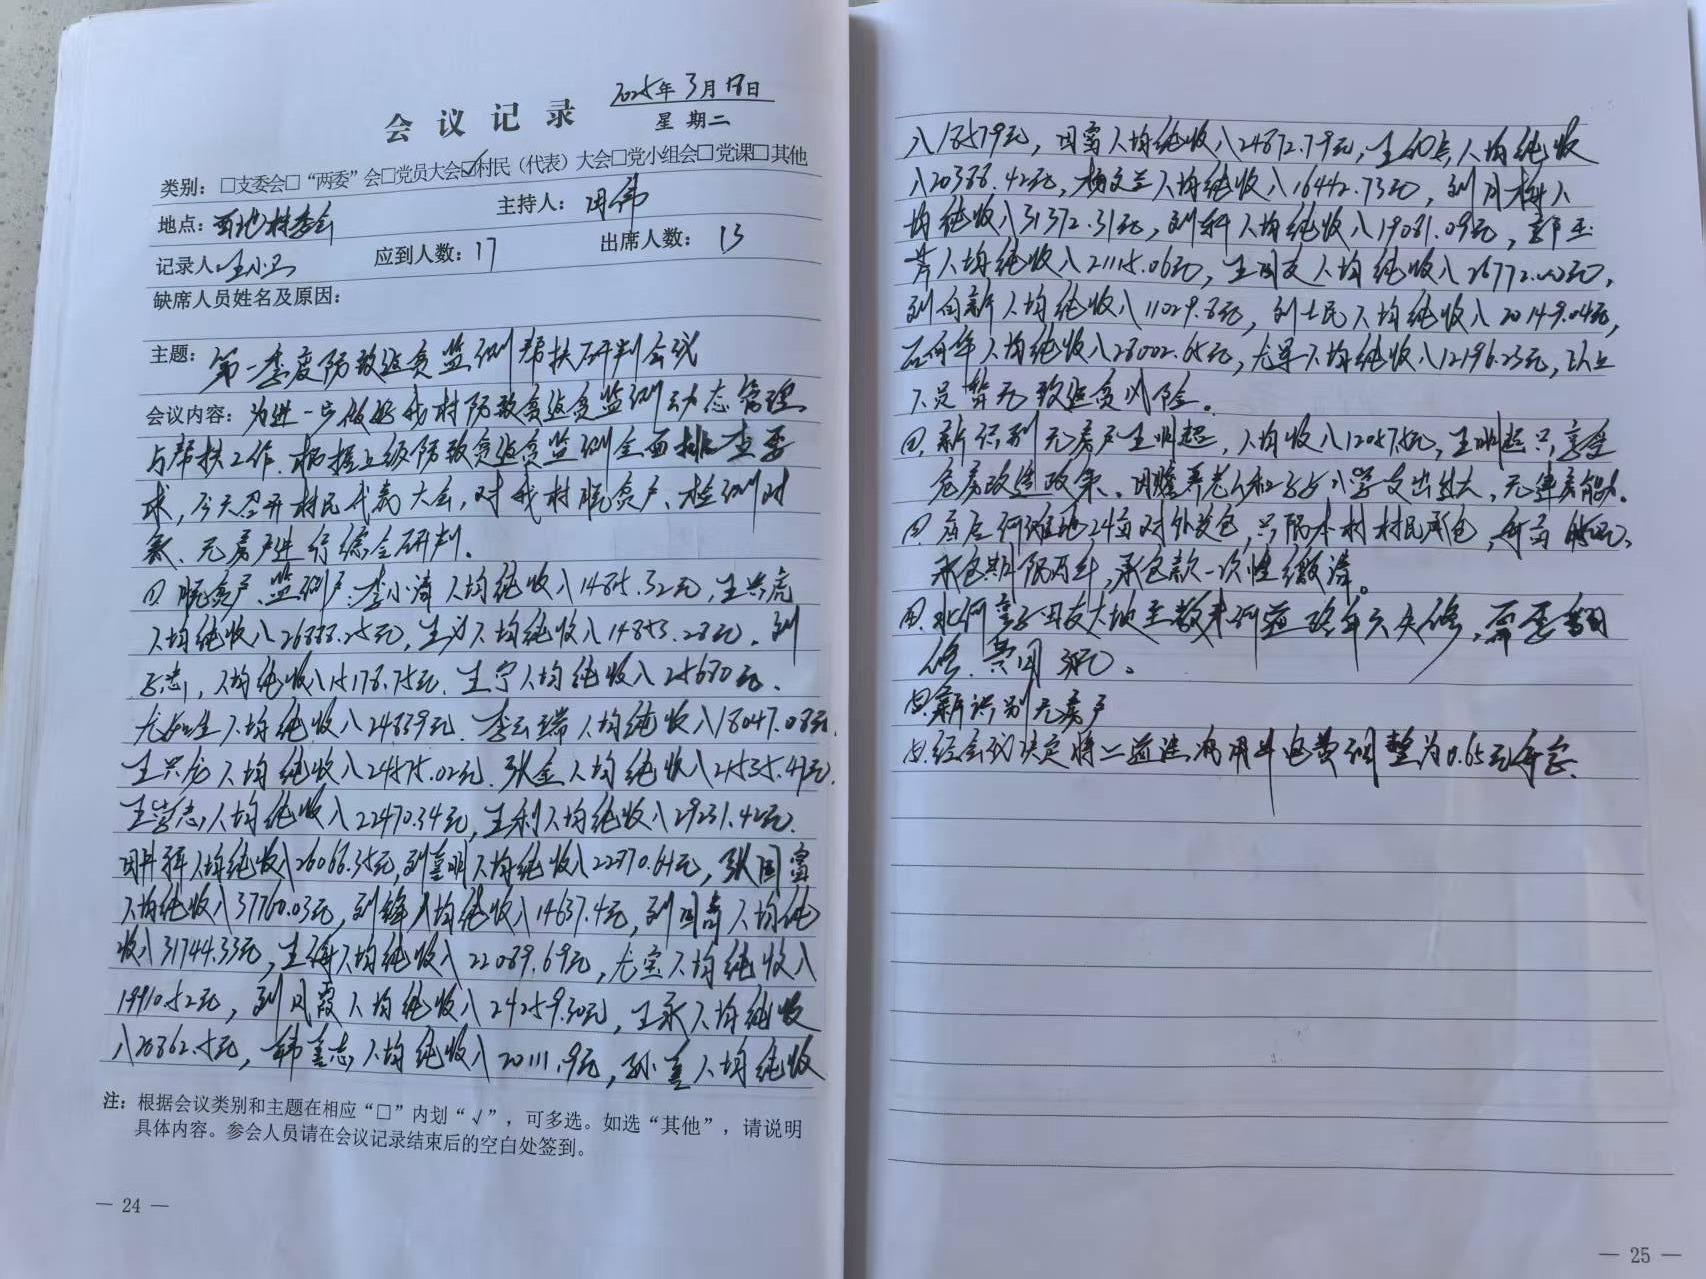 会议记录
2025年3月18日
星期二
类别：□支委会□“两委”会□党员大会☑村民（代表）大会□党小组会□党课□其他
地点：西地村委会 主持人：田伟
记录人：王小卫 应到人数：17 出席人数：13
缺席人员姓名及原因：
主题：第一季度防致返贫监测帮扶研判会议
会议内容：为进一步做好我村防致贫返贫监测动态管理
与帮扶工作，根据上级防致贫返贫监测全面排查要
求，今天召开村民代表大会，对我村脱贫户、检测对
象、无房户进行综合研判。
①脱贫户、监测户：李小涛人均纯收入14815.32元，王兴虎
人均纯收入26888.25元，王为人均纯收入14853.28元，刘
志，人均纯收入15178.75元，王宁人均纯收入25680元，
尤如生人均纯收入24839元，李云瑞人均纯收入18047.08元，
王兴龙人均纯收入24575.02元，张金人均纯收入21535.41元，
王营志人均纯收入22470.34元，王利人均纯收入29231.42元，
田井祥人均纯收入26066.35元，刘喜明人均纯收入22870.61元，张国富
人均纯收入37760.03元，刘锋人均纯收入14637.4元，刘国奇人均纯
收入31744.33元，王海人均纯收入22089.69元，尤宝人均纯收入
19910.52元，刘凤霞人均纯收入24259.30元，王永人均纯收
入20862.5元，韩善志人均纯收入20111.9元，孙宝人均纯收
注：根据会议类别和主题在相应“□”内划“√”，可多选。如选“其他”，请说明
具体内容。参会人员请在会议记录结束后的空白处签到。
— 24 —
入18579元，田富人均纯收入24872.79元，王的兵人均纯收
入20388.42元，杨文兰人均纯收入16442.73元，刘月梅人
均纯收入31372.31元，刘轩人均纯收入19081.09元，郭玉
芳人均纯收入21115.06元，王国友人均纯收入26772.00元，
刘向新人均纯收入11029.8元，刘士民人均纯收入20149.04元，
石何年人均纯收入28002.65元，尤军人均纯收入12196.23元，以上
人员暂无致返贫风险。
②新识别无房户王明超，人均收入12057.5元，王明超只享受
危房改造政策、因赡养老人和子女上学支出较大，无建房能力。
③庙后河滩地24亩对外发包，只限本村村民承包，每亩
承包期限两年，承包款一次性缴清。
④北何 田友大地至 河道路年久失修，需要翻
修，费用 元。
⑤新识别无房户
⑥经会议决定将二道 用井电费调整为0.65元每字。
— 25 —